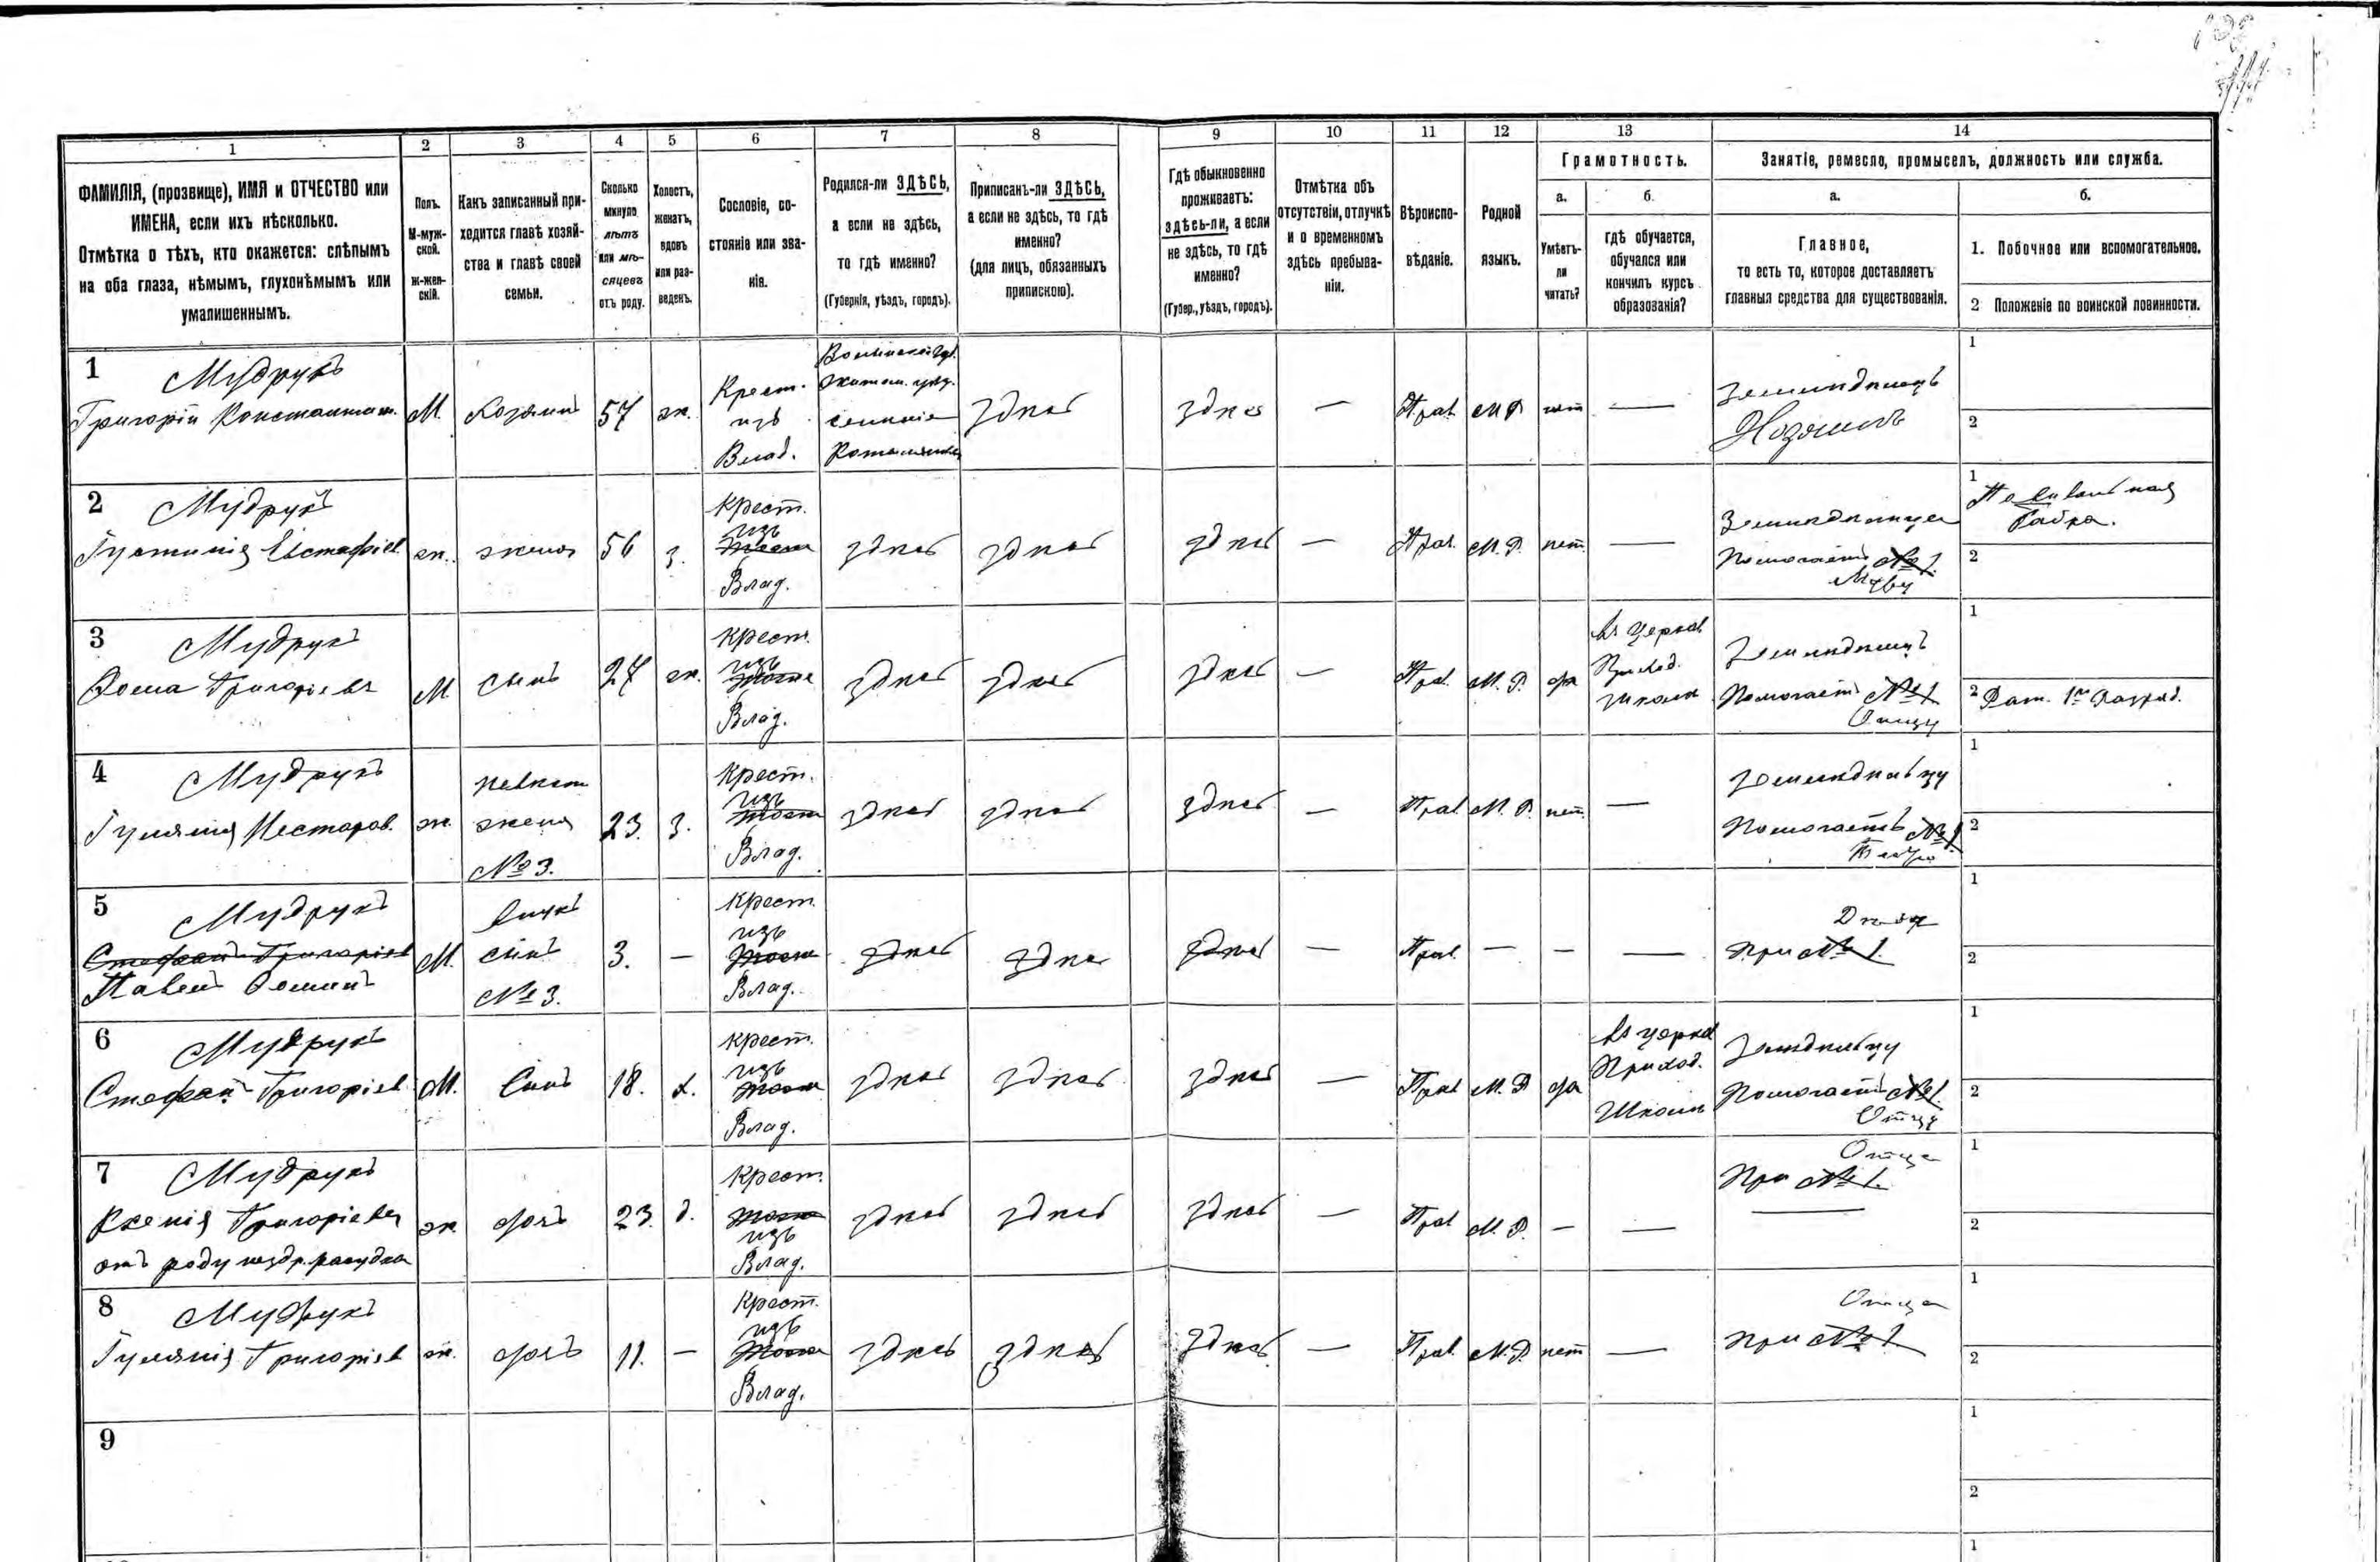 1 2 3 4 5 6 7 8 9 10 11 12 13 14
ФАМИЛІЯ, (прозвище), ИМЯ и ОТЧЕСТВО или
ИМЕНА, если ихъ нѣсколько.
Отмѣтка о тѣхъ, кто окажется: слѣпымъ
на оба глаза, нѣмымъ, глухонѣмымъ или
умалишеннымъ.
Полъ.
М-муж-
ской.
ж-жен-
скій.
Какъ записанный при-
ходится главѣ хозяй-
ства и главѣ своей
семьи.
Сколько
минуло
лѣтъ
или мѣ-
сяцевъ
отъ роду.
Холостъ,
женатъ,
вдовъ
или раз-
веденъ.
Сословіе, со-
стояніе или зва-
ніе.
Родился-ли ЗДѢСЬ,
а если не здѣсь,
то гдѣ именно?
(Губернія, уѣздъ, городъ).
Приписанъ-ли ЗДѢСЬ,
а если не здѣсь, то гдѣ
именно?
(для лицъ, обязанныхъ
припискою).
Гдѣ обыкновенно
проживаетъ:
здѣсь-ли, а если
не здѣсь, то гдѣ
именно?
(Губер., уѣздъ, городъ).
Отмѣтка объ
отсутствіи, отлучкѣ
и о временномъ
здѣсь пребыва-
ніи.
Вѣроиспо-
вѣданіе.
Родной
языкъ.
Грамотность.
а.
Умѣетъ-
ли
читать?
б.
гдѣ обучается,
обучался или
кончилъ курсъ
образованія?
Занятіе, ремесло, промыселъ, должность или служба.
а.
Главное,
то есть то, которое доставляетъ
главныя средства для существованія.
б.
1. Побочное или вспомогательное.
2 Положеніе по воинской повинности.
1 Мудрукъ
Григорій Константин.
М.
хозяинъ
57
ж.
Крест.
изъ
Влад.
Волынской губ.
Житом. уѣзд.
селеніе
здѣсь
здѣсь
—
Прав.
М Р
нет
—
Земледѣлецъ
Хозяинъ
1
2
2 Мудрукъ
Евстафіев.
ж.
жена
56
з.
Крест.
изъ
Влад.
здѣсь
здѣсь
здѣсь
—
Прав.
М. Р.
нет.
—
Помогаетъ №1.
Мужу
1
2
3 Мудрукъ
Фома Григорьевъ
М
сынъ
27
ж.
Крест.
изъ
Влад.
здѣсь
здѣсь
здѣсь
—
Прав.
М. Р.
да
въ церков
Приход.
школѣ
Земледѣлецъ
Помогаетъ №1
Отцу
1
2 Рат. 1го Разряд.
4 Мудрукъ
Несторов.
ж.
невѣст
жена
№ 3.
23.
з.
Крест.
изъ
Влад.
здѣсь
здѣсь
здѣсь
—
Прав.
М. Р.
нет.
—
Земледѣльцу
Помогаетъ №1
1
2
5 Мудрукъ
Стефанъ Григоріев
Павелъ Фоминъ
М.
внукъ
сынъ
№ 3.
3.
—
Крест.
изъ
Влад.
здѣсь
здѣсь
здѣсь
—
Прав.
—
—
—
При № 1.
1
2
6 Мудрукъ
Стефанъ Григоріев
М.
Сынъ
18.
х.
Крест.
изъ
Влад.
здѣсь
здѣсь
здѣсь
—
Прав
М. Р
да
въ церков
Приход.
Школѣ
Помогаетъ №1.
Отцу
1
2
7 Мудрукъ
Ксенія Григоріевна
отъ роду
ж
дочь
23.
д.
Крест.
изъ
Влад.
здѣсь
здѣсь
здѣсь
—
Прав
М. Р.
—
—
Отца
При № 1.
1
2
8 Мудрукъ
Григоріев
ж.
дочь
11.
—
Крест.
изъ
Влад.
здѣсь
здѣсь
здѣсь
—
Прав.
М. Р.
нет
—
Отца
При № 1
1
2
9
1
2
1